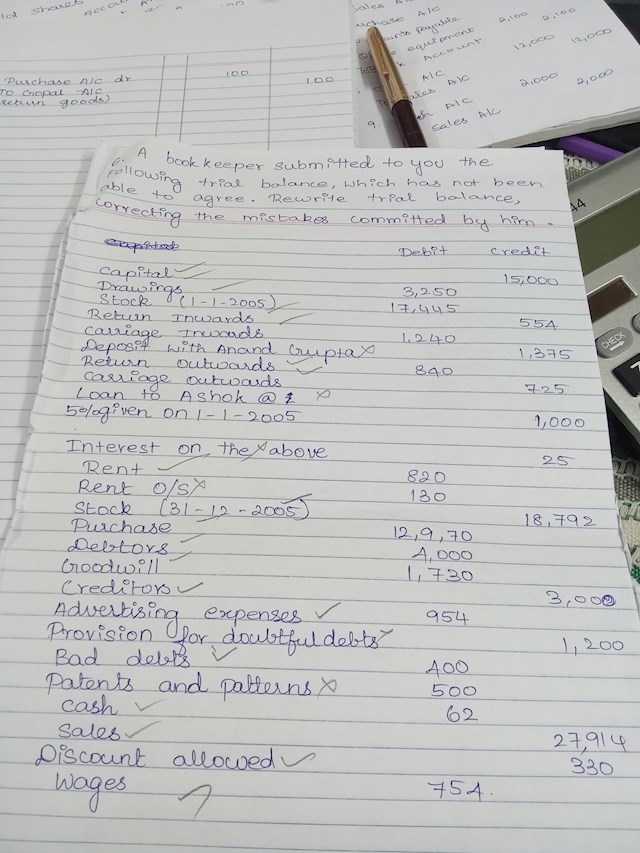 ld shares Account
Purchase A/c dr 100
To Gopal A/c 100
return goods)
Sales A/c
Purchase A/c
payable 2,100 2,100
equipment
Account 12,000 12,000
A/c
Sales A/c 2,000 2,000
9. A/c
Sales A/c
44
CHECK
6. A book keeper submitted to you the
following trial balance, which has not been
able to agree. Rewrite trial balance,
correcting the mistakes committed by him.
Debit Credit
Capital 15,000
Drawings 3,250
Stock (1-1-2005) 17,445
Return Inwards 554
Carriage Inwards 1,240
Deposit with Anand Gupta 1,375
Return outwards 840
Carriage outwards 725
Loan to Ashok @
5% given on 1-1-2005 1,000
Interest on the above 25
Rent 820
Rent O/S 130
Stock (31-12-2005) 18,792
Purchase 12,9,70
Debtors 4,000
Goodwill 1,730
Creditors 3,000
Advertising expenses 954
Provision for doubtful debts 1,200
Bad debts 400
Patents and patterns 500
Cash 62
Sales 27,914
Discount allowed 330
Wages 754.